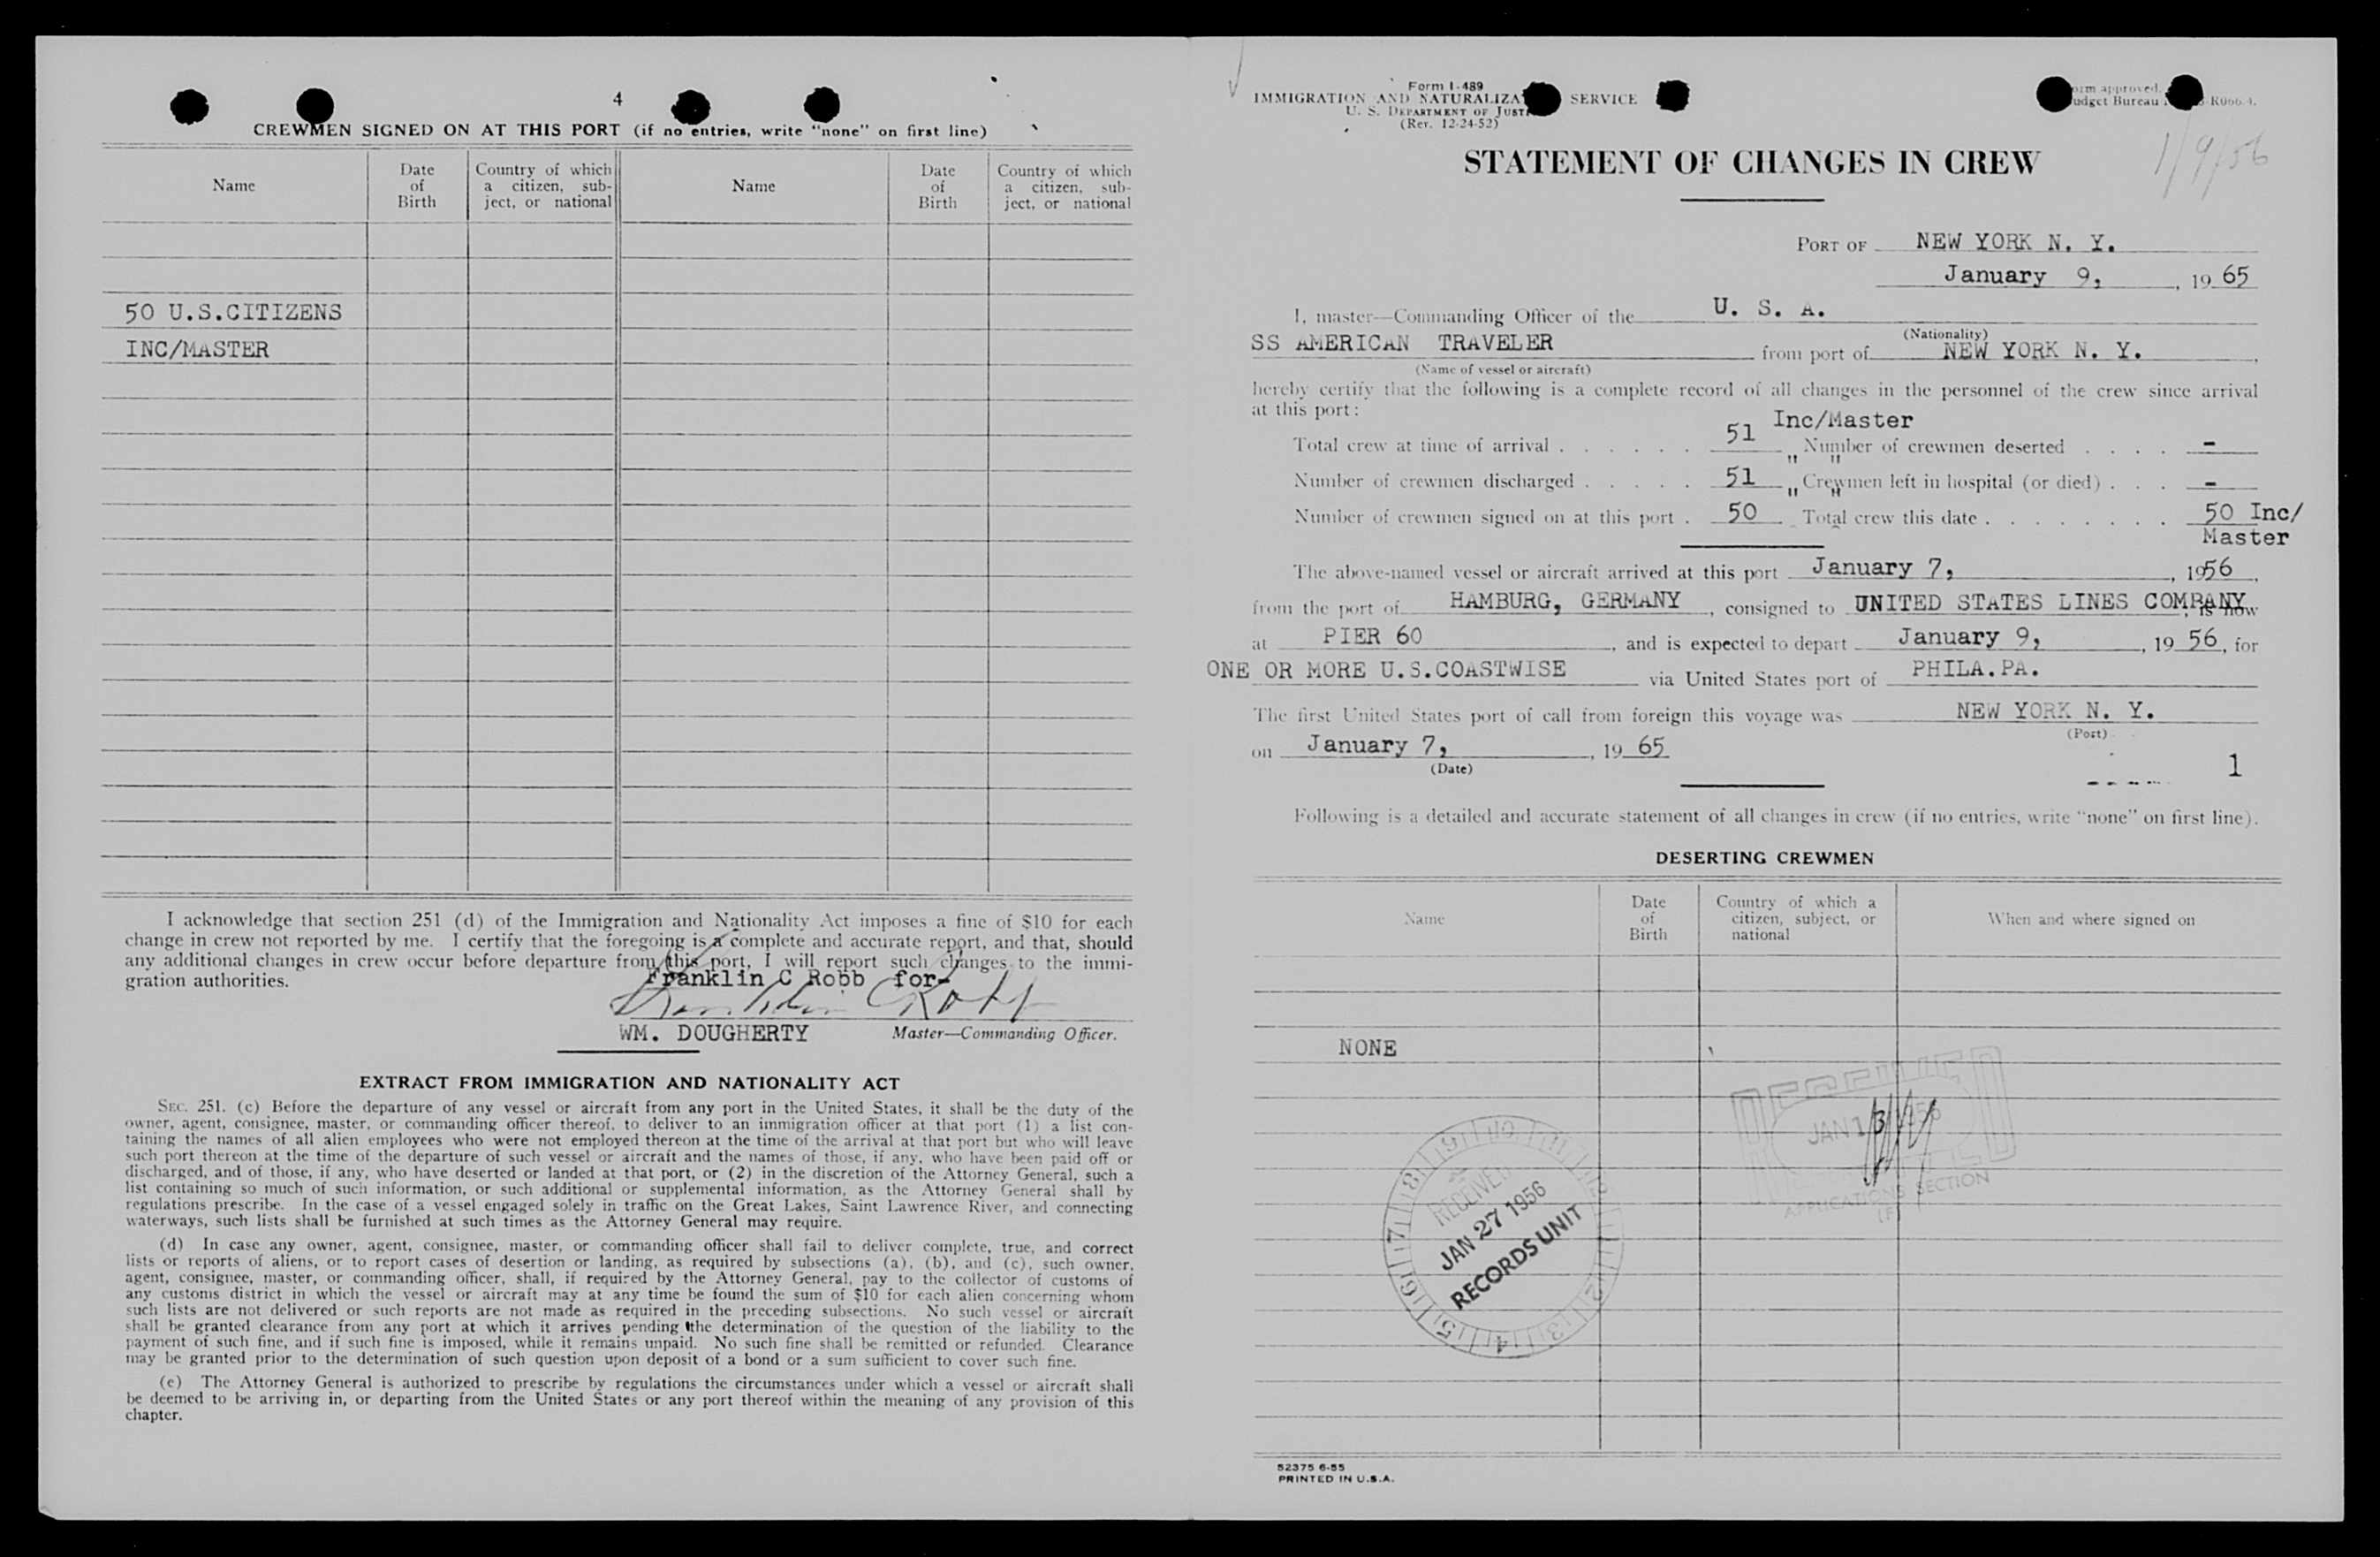 4
CREWMEN SIGNED ON AT THIS PORT (if no entries, write "none" on first line)
Name
Date of Birth
Country of which a citizen, subject, or national
Name
Date of Birth
Country of which a citizen, subject, or national
50 U.S.CITIZENS
INC/MASTER
I acknowledge that section 251 (d) of the Immigration and Nationality Act imposes a fine of $10 for each
change in crew not reported by me. I certify that the foregoing is a complete and accurate report, and that, should
any additional changes in crew occur before departure from this port, I will report such changes to the immi-
gration authorities.
Franklin C Robb for-
Franklin C Robb
WM. DOUGHERTY Master—Commanding Officer.
EXTRACT FROM IMMIGRATION AND NATIONALITY ACT
SEC. 251. (c) Before the departure of any vessel or aircraft from any port in the United States, it shall be the duty of the
owner, agent, consignee, master, or commanding officer thereof, to deliver to an immigration officer at that port (1) a list con-
taining the names of all alien employees who were not employed thereon at the time of the arrival at that port but who will leave
such port thereon at the time of the departure of such vessel or aircraft and the names of those, if any, who have been paid off or
discharged, and of those, if any, who have deserted or landed at that port, or (2) in the discretion of the Attorney General, such a
list containing so much of such information, or such additional or supplemental information, as the Attorney General shall by
regulations prescribe. In the case of a vessel engaged solely in traffic on the Great Lakes, Saint Lawrence River, and connecting
waterways, such lists shall be furnished at such times as the Attorney General may require.
(d) In case any owner, agent, consignee, master, or commanding officer shall fail to deliver complete, true, and correct
lists or reports of aliens, or to report cases of desertion or landing, as required by subsections (a), (b), and (c), such owner,
agent, consignee, master, or commanding officer, shall, if required by the Attorney General, pay to the collector of customs of
any customs district in which the vessel or aircraft may at any time be found the sum of $10 for each alien concerning whom
such lists are not delivered or such reports are not made as required in the preceding subsections. No such vessel or aircraft
shall be granted clearance from any port at which it arrives pending the determination of the question of the liability to the
payment of such fine, and if such fine is imposed, while it remains unpaid. No such fine shall be remitted or refunded. Clearance
may be granted prior to the determination of such question upon deposit of a bond or a sum sufficient to cover such fine.
(e) The Attorney General is authorized to prescribe by regulations the circumstances under which a vessel or aircraft shall
be deemed to be arriving in, or departing from the United States or any port thereof within the meaning of any provision of this
chapter.
Form I-489
IMMIGRATION AND SERVICE
U. S. DEPARTMENT OF
(Rev. 12-24-52)
approved.
Bureau R066.4.
STATEMENT OF CHANGES IN CREW
1/9/56
PORT OF NEW YORK N. Y.
January 9, , 19 65
I, master—Commanding Officer of the U. S. A.
(Nationality)
SS AMERICAN TRAVELER from port of NEW YORK N. Y. ,
(Name of vessel or aircraft)
hereby certify that the following is a complete record of all changes in the personnel of the crew since arrival
at this port:
Inc/Master
Total crew at time of arrival . . . . . . 51 Number of crewmen deserted . . . . -
" "
Number of crewmen discharged . . . . . 51 Crewmen left in hospital (or died) . . . -
" "
Number of crewmen signed on at this port . 50 Total crew this date . . . . . . . . 50 Inc/
Master
The above-named vessel or aircraft arrived at this port January 7, , 1956 ,
from the port of HAMBURG, GERMANY , consigned to UNITED STATES LINES COMPANY , is now
at PIER 60 , and is expected to depart January 9, , 19 56, for
ONE OR MORE U.S.COASTWISE via United States port of PHILA.PA.
The first United States port of call from foreign this voyage was NEW YORK N. Y.
(Port)
on January 7, , 19 65
(Date)
1
Following is a detailed and accurate statement of all changes in crew (if no entries, write "none" on first line).
DESERTING CREWMEN
Name
Date of Birth
Country of which a citizen, subject, or national
When and where signed on
NONE
RECEIVED
JAN 13 1956
APPLICATIONS SECTION
(F)
RECEIVED
JAN 27 1956
RECORDS UNIT
52375 6-55
PRINTED IN U.S.A.